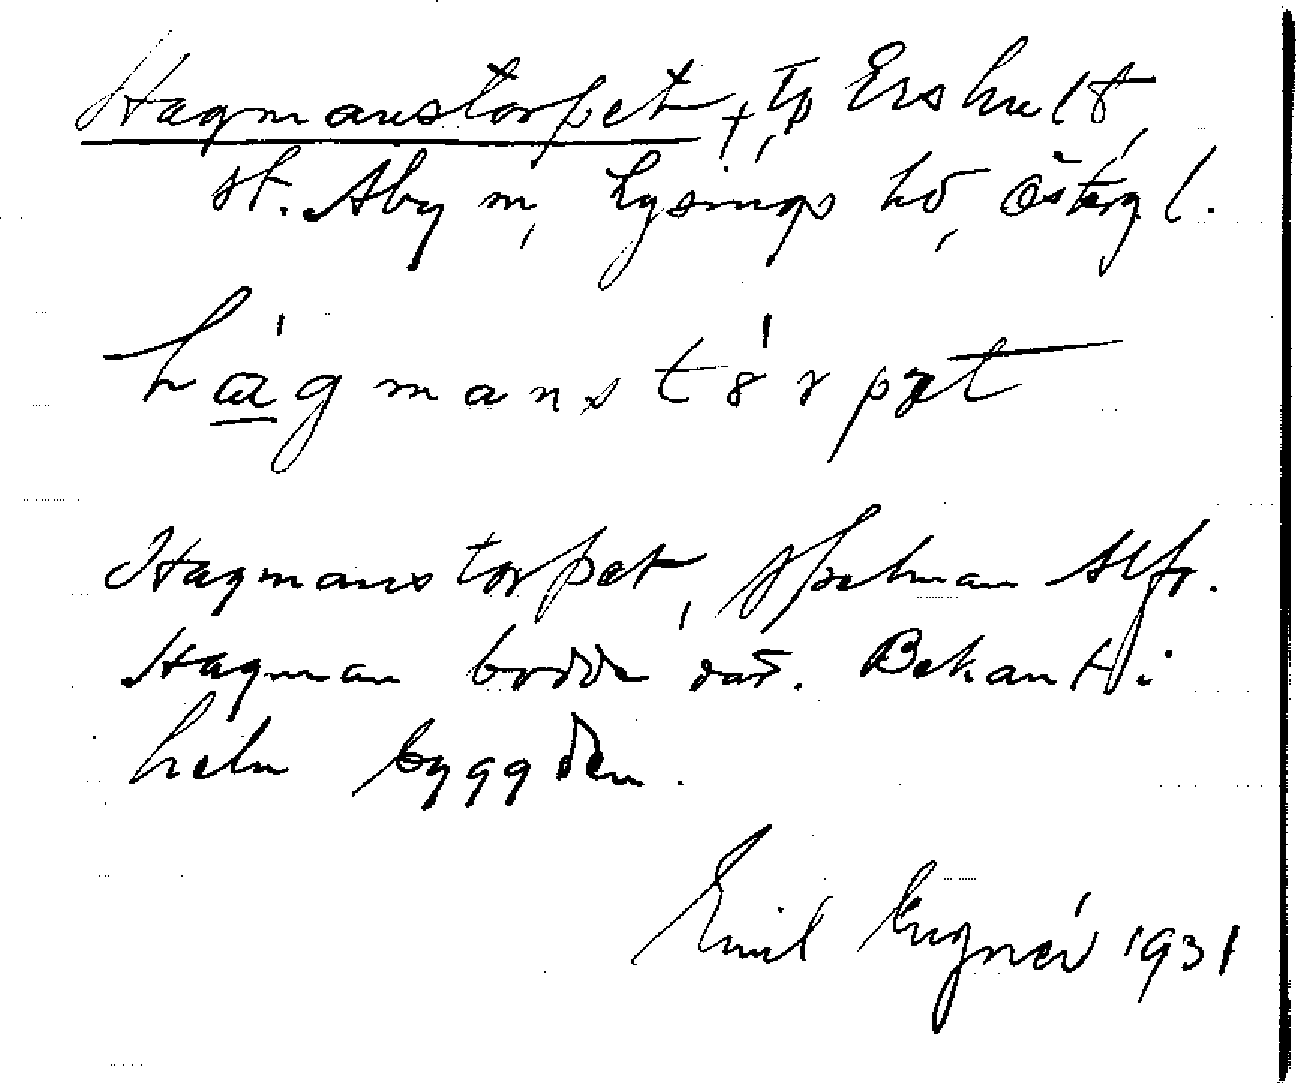 Hagmanstorpet, †, tp Ershult,
St. Åby sn, Lysings hd, Östergl.
hágmanstórpət
Hagmanstorpet, spelman Alfr.
Hagman bodde där. Bekant i
hela byggden.
Emil 1931